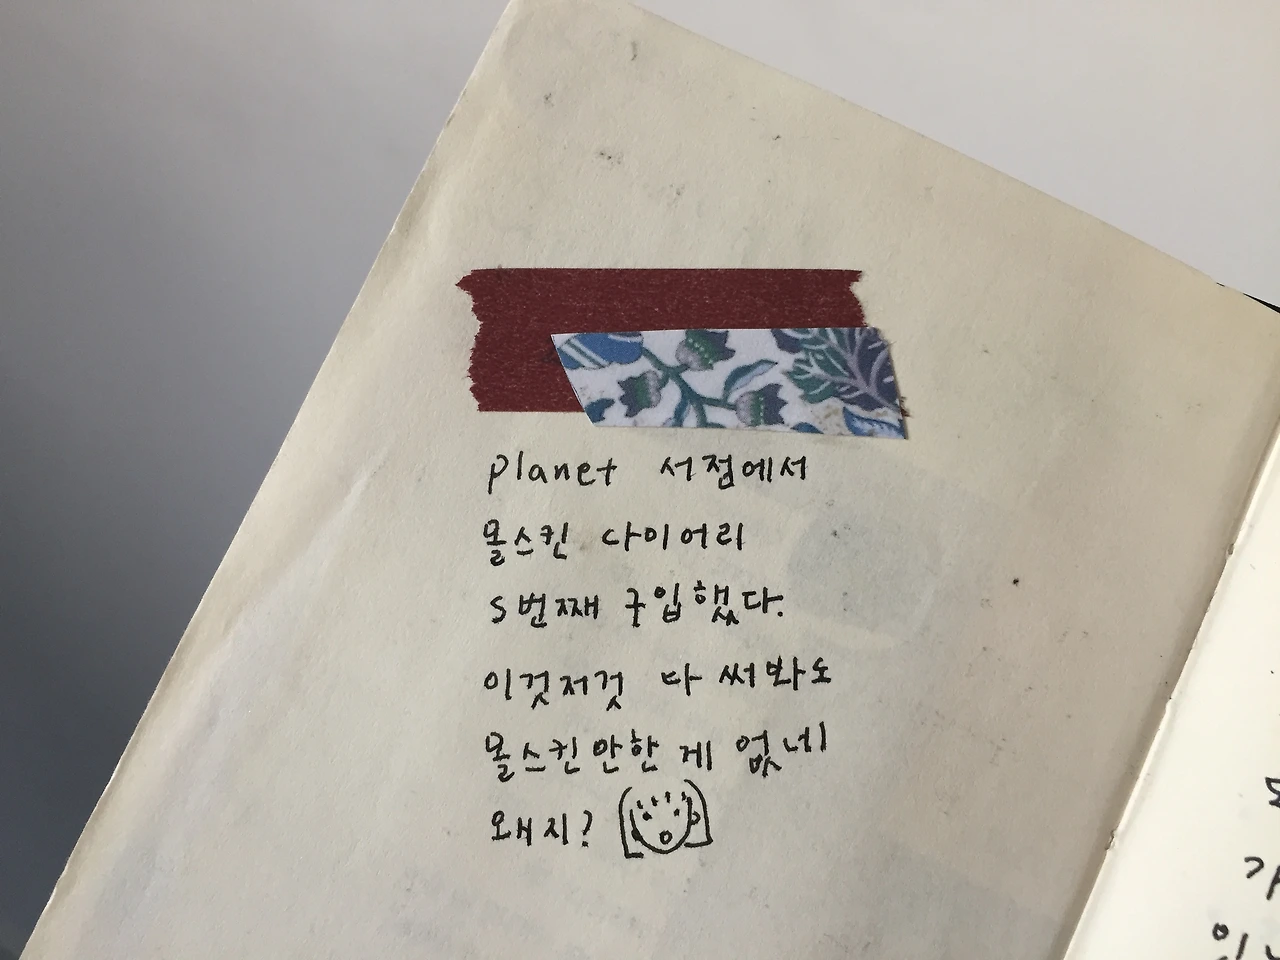 planet 서점에서
몰스킨 다이어리
5번째 구입했다.
이것저것 다 써봐도
몰스킨만한 게 없네
왜지?